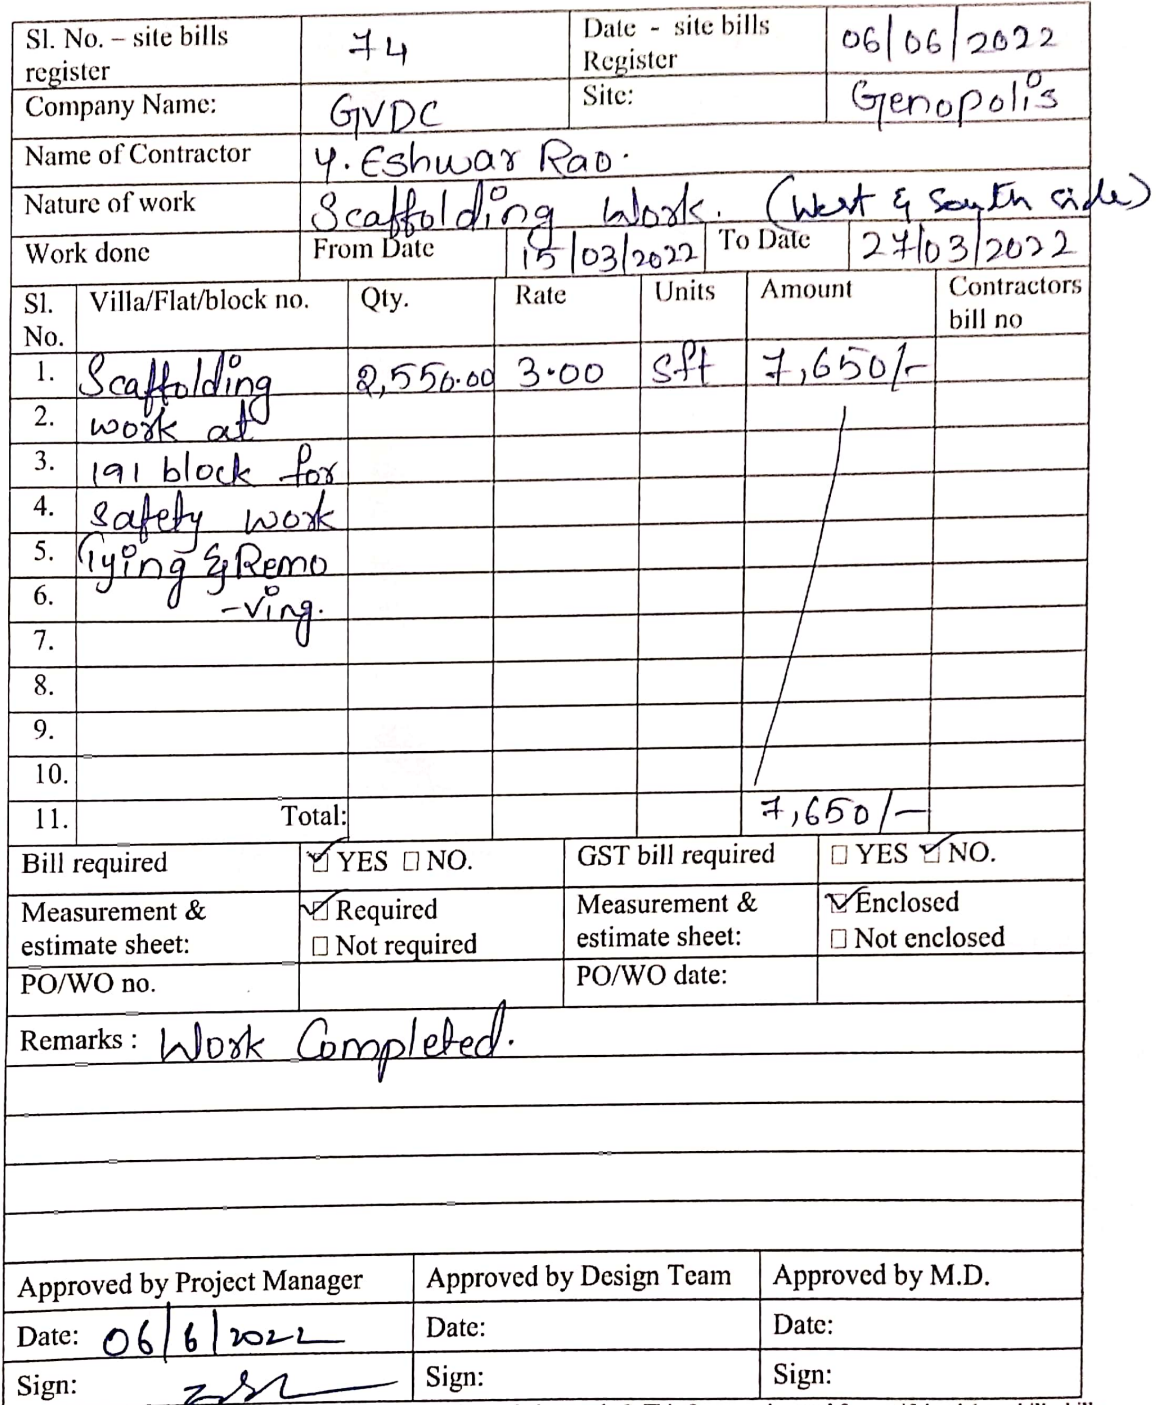 Sl. No. – site bills register 74 Date - site bills Register 06/06/2022
Company Name: GVDC Site: Genopolis
Name of Contractor Y. Eshwar Rao.
Nature of work Scaffolding Work. (West & South side)
Work done From Date 15/03/2022 To Date 27/03/2022
Sl. No. Villa/Flat/block no. Qty. Rate Units Amount Contractors bill no
1. Scaffolding 2,550.00 3.00 sft 7,650/-
2. work at
3. 191 block for
4. safety work
5. Tying & Remo
6. -ving.
7.
8.
9.
10.
11. Total: 7,650/-
Bill required ☑ YES ☐ NO. GST bill required ☐ YES ☑ NO.
Measurement & estimate sheet: ☑ Required ☐ Not required Measurement & estimate sheet: ☑ Enclosed ☐ Not enclosed
PO/WO no. PO/WO date:
Remarks : Work Completed.
Approved by Project Manager Approved by Design Team Approved by M.D.
Date: 06/6/2022 Date: Date:
Sign: Sign: Sign: